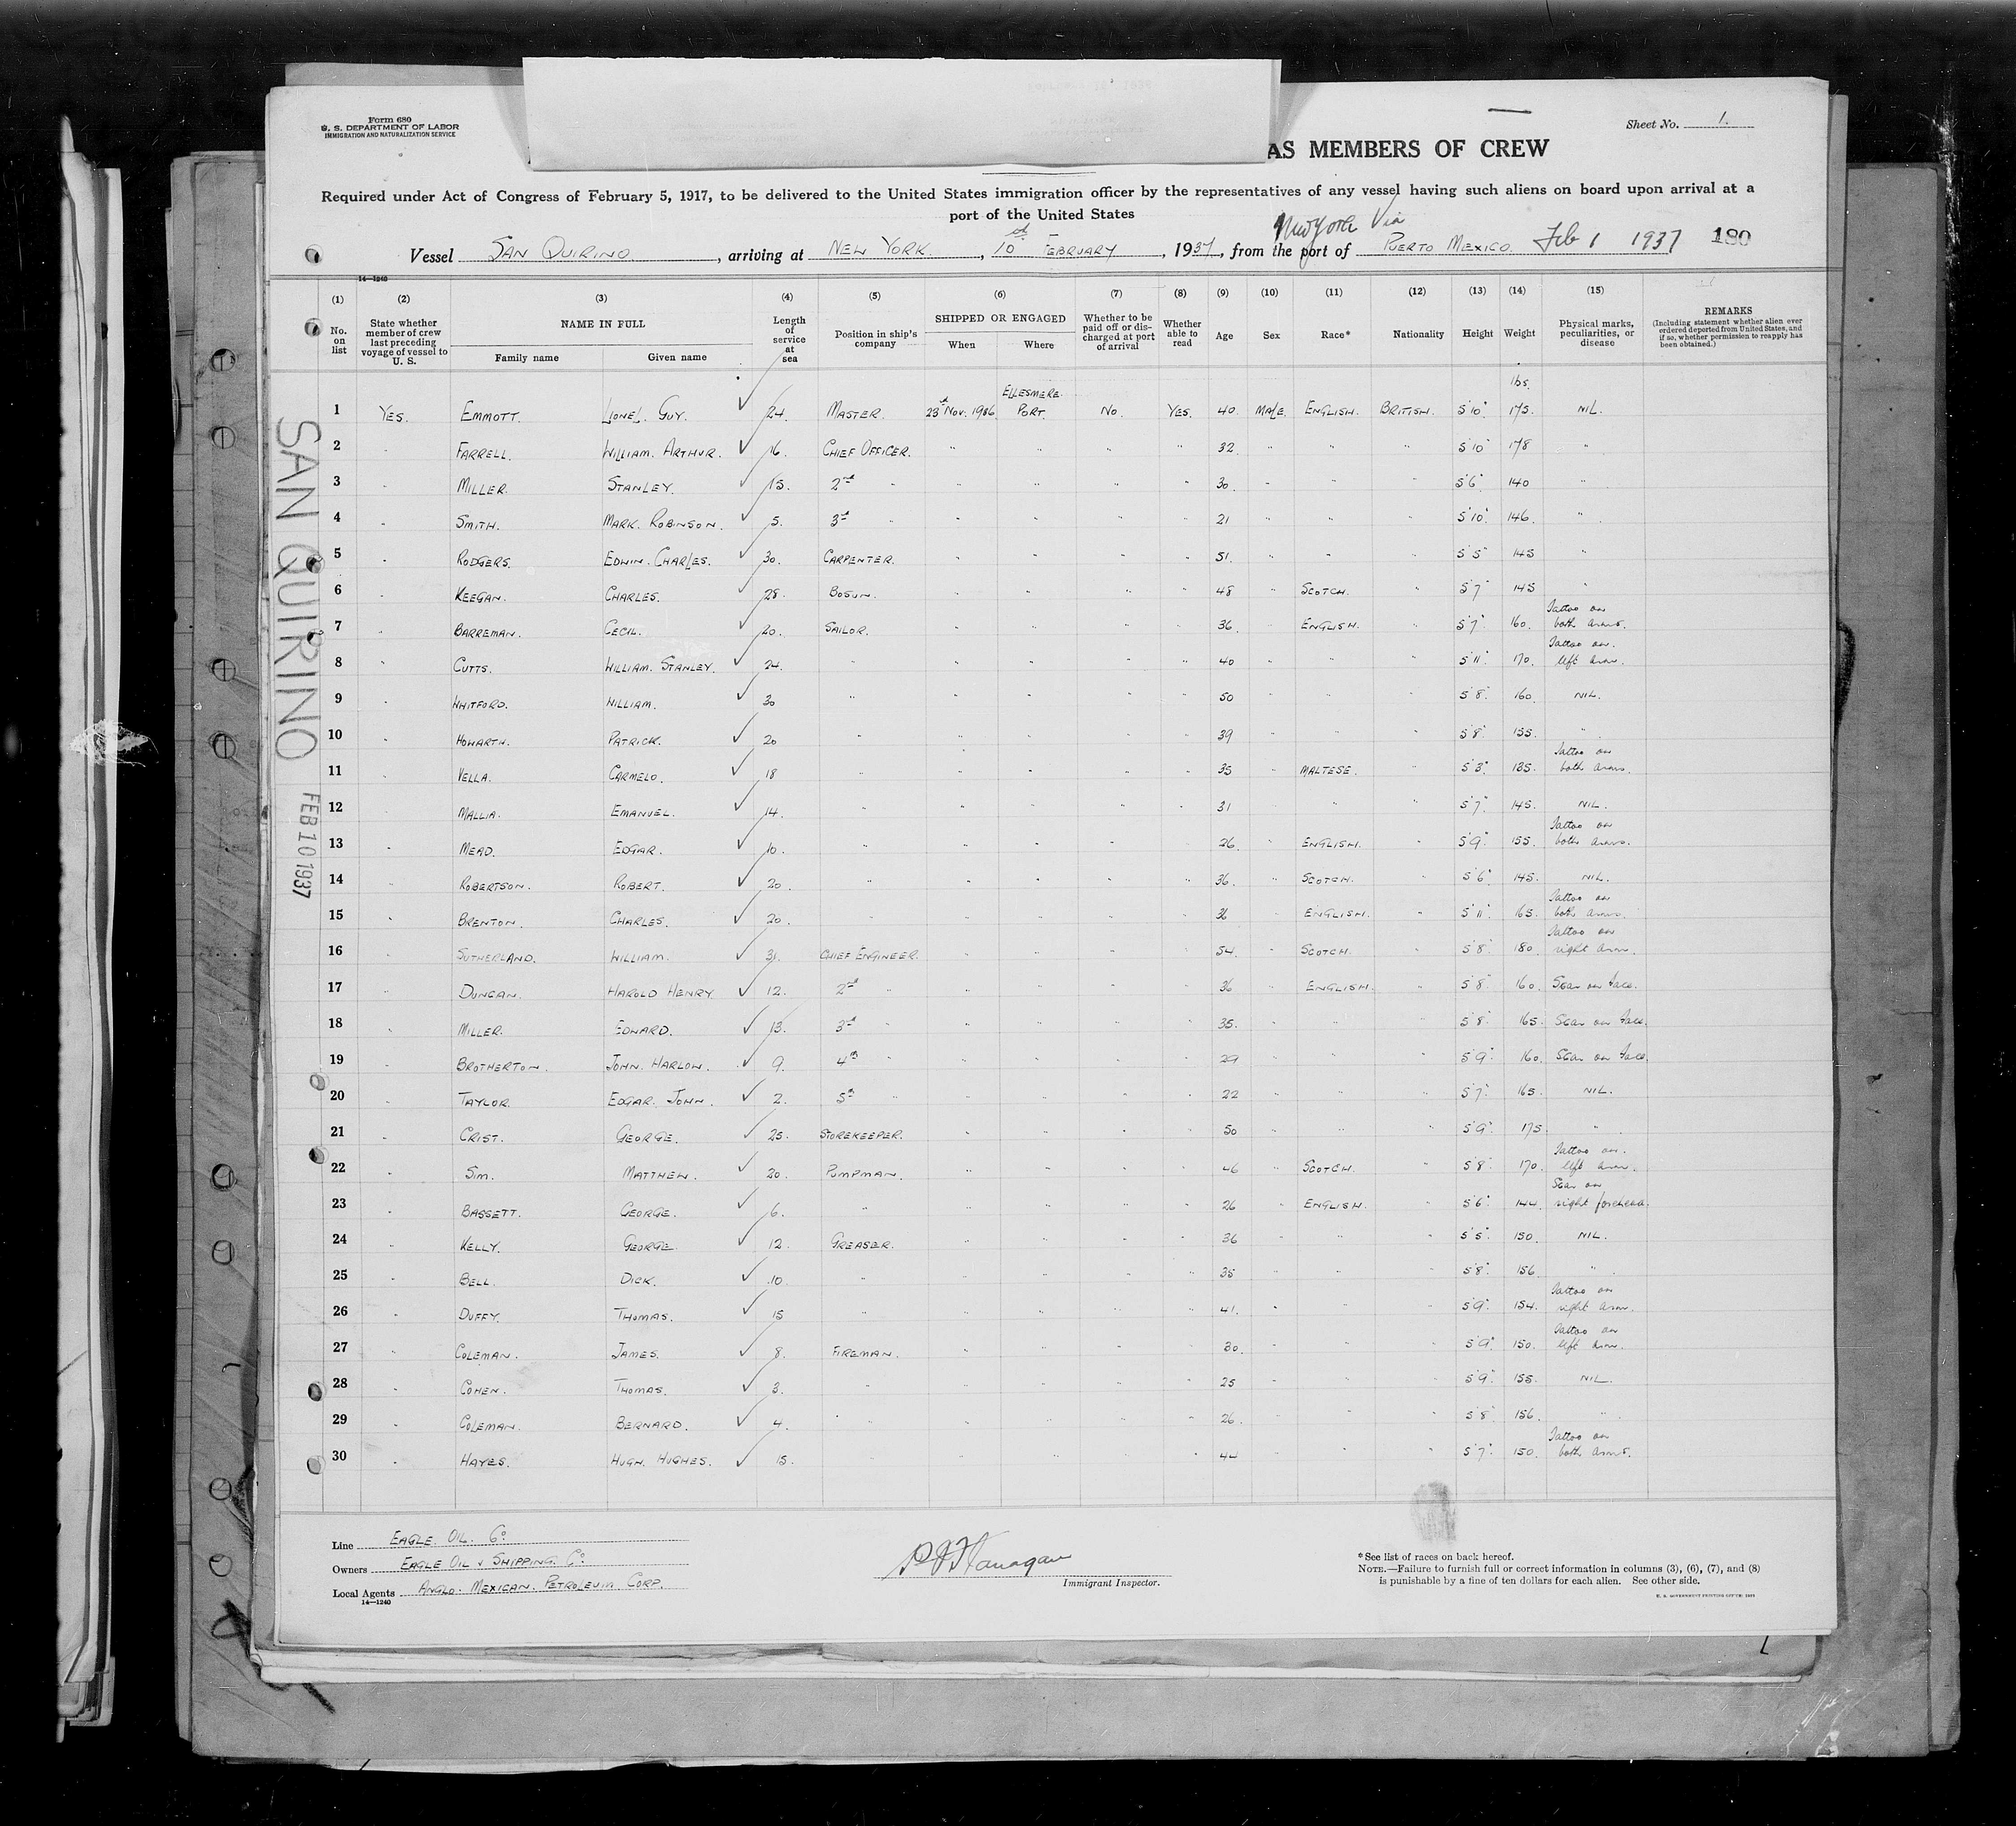 Form 680
U. S. DEPARTMENT OF LABOR
IMMIGRATION AND NATURALIZATION SERVICE
Sheet No. 1.
AS MEMBERS OF CREW
Required under Act of Congress of February 5, 1917, to be delivered to the United States immigration officer by the representatives of any vessel having such aliens on board upon arrival at a
port of the United States
New York Via
Vessel SAN QUIRINO, arriving at NEW YORK., 10 FEBRUARY, 1937, from the port of PUERTO MEXICO. Feb 1 1937 180
14—1240
(1) (2) (3) (4) (5) (6) (7) (8) (9) (10) (11) (12) (13) (14) (15)
No. on list
State whether member of crew last preceding voyage of vessel to U. S.
NAME IN FULL
Family name
Given name
Length of service at sea
Position in ship's company
SHIPPED OR ENGAGED
When
Where
Whether to be paid off or discharged at port of arrival
Whether able to read
Age
Sex
Race*
Nationality
Height
Weight
Physical marks, peculiarities, or disease
REMARKS
(Including statement whether alien ever ordered deported from United States, and if so, whether permission to reapply has been obtained.)
lbs.
1 YES. EMMOTT. LIONEL GUY. 24. MASTER. 23rd NOV. 1936 ELLESMERE PORT. NO. YES. 40. MALE. ENGLISH. BRITISH. 5'10" 175. NIL.
2 " FARRELL. WILLIAM. ARTHUR. 16. CHIEF OFFICER. " " " " 32. " " " 5'10" 178 "
3 " MILLER. STANLEY. 15. 2nd " " " " " 30. " " " 5'6" 140 "
4 " SMITH. MARK. ROBINSON. 5. 3rd " " " " " 21 " " " 5'10" 146. "
5 " RODGERS. EDWIN. CHARLES. 30. CARPENTER. " " " " 51. " " " 5'5" 145 "
6 " KEEGAN. CHARLES. 28. BOSUN. " " " " 48 " SCOTCH. " 5'7" 145 "
7 " BARREMAN. CECIL. 20. SAILOR. " " " " 36. " ENGLISH. " 5'7" 160. Tattoo on both arms.
8 " CUTTS. WILLIAM. STANLEY. 24. " " " " " 40 " " " 5'11" 170. Tattoo on left arm.
9 " WHITFORD. WILLIAM. 30 " " " " " 50 " " " 5'8" 160. NIL.
10 " HOWARTH. PATRICK. 20 " " " " " 39 " " " 5'8" 155. "
11 " VELLA. CARMELO. 18 " " " " " 35 " MALTESE. " 5'3" 135. Tattoo on both arms.
12 " MALLIA. EMANUEL. 14. " " " " " 31 " " " 5'7" 145. NIL.
13 " MEAD. EDGAR. 10. " " " " " 26. " ENGLISH. " 5'9" 155. Tattoo on both arms.
14 " ROBERTSON. ROBERT. 20. " " " " " 36. " SCOTCH. " 5'6" 145. NIL.
15 " BRENTON. CHARLES. 20. " " " " " 36 " ENGLISH. " 5'11" 165. Tattoo on both arms.
16 " SUTHERLAND. WILLIAM. 31. CHIEF ENGINEER. " " " " 54. " SCOTCH. " 5'8" 180. Tattoo on right arm.
17 " DUNCAN. HAROLD HENRY 12. 2nd " " " " " 36 " ENGLISH. " 5'8" 160. Scar on face.
18 " MILLER. EDWARD. 13. 3rd " " " " " 35. " " " 5'8" 165. Scar on face.
19 " BROTHERTON. JOHN. HARLOW. 9. 4th " " " " " 29 " " " 5'9" 160. Scar on face.
20 " TAYLOR. EDGAR. JOHN. 2. 5th " " " " " 22 " " " 5'7" 165. NIL.
21 " CRIST. GEORGE. 25. STOREKEEPER. " " " " 50 " " " 5'9" 175. "
22 " SIM. MATTHEW. 20. PUMPMAN. " " " " 46 " SCOTCH. " 5'8" 170. Tattoo on left arm.
23 " BASSETT. GEORGE. 6. " " " " " 26 " ENGLISH. " 5'6" 144. Scar on right forehead.
24 " KELLY. GEORGE. 12. GREASER. " " " " 36 " " " 5'5" 150. NIL.
25 " BELL. DICK. 10. " " " " " 35 " " " 5'8" 156 "
26 " DUFFY. THOMAS. 15 " " " " " 41. " " " 5'9" 154. Tattoo on right arm.
27 " COLEMAN. JAMES. 8. FIREMAN. " " " " 30. " " " 5'9" 150. Tattoo on left arm.
28 " COHEN. THOMAS. 3. " " " " " 25 " " " 5'9" 155. NIL.
29 " COLEMAN. BERNARD. 4. " " " " " 26. " " " 5'8" 156. "
30 " HAYES. HUGH. HUGHES. 15. " " " " 44 " " " 5'7" 150. Tattoo on both arms.
SAN QUIRINO
FEB 10 1937
Line EAGLE. OIL. Co.
Owners EAGLE OIL & SHIPPING. Co.
Local Agents ANGLO-MEXICAN. PETROLEUM. CORP.
14—1240
P J Flanagan
Immigrant Inspector.
*See list of races on back hereof.
NOTE.—Failure to furnish full or correct information in columns (3), (6), (7), and (8)
is punishable by a fine of ten dollars for each alien. See other side.